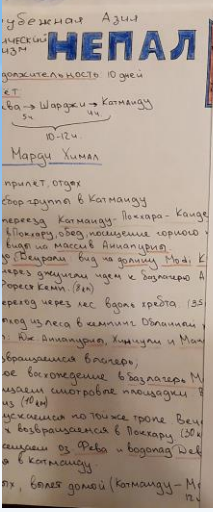 рубежная Азия
ический
изм
НЕПАЛ
должительность 10 дней
ва → Шарджи → Катманду
5ч 4ч
10-12ч.
Марди Химал
прилет, отдых
сбор группы в Катманду
переезд Катманду - Покхара - Канде
в Покхару, обед, посещение горного
виды на массив Аннапурны.
вид на долину Моди К
через джунгли идем к базлагерю А
Форест Кемп. (8км)
переход через лес вдоль хребта. (35
из леса в кемпинг
: Юж Аннапурны, Хиунчули и Мача
звращаемся в лагерь,
ое восхождение в базлагерь М
щаем смотровые площадки
из (10км)
ускаемся по той же тропе
возвращаемся в Покхару (30к
сещаем оз Фева и водопад Дев
я в Катманду.
ых, вылет домой (Катманду - М
12ч